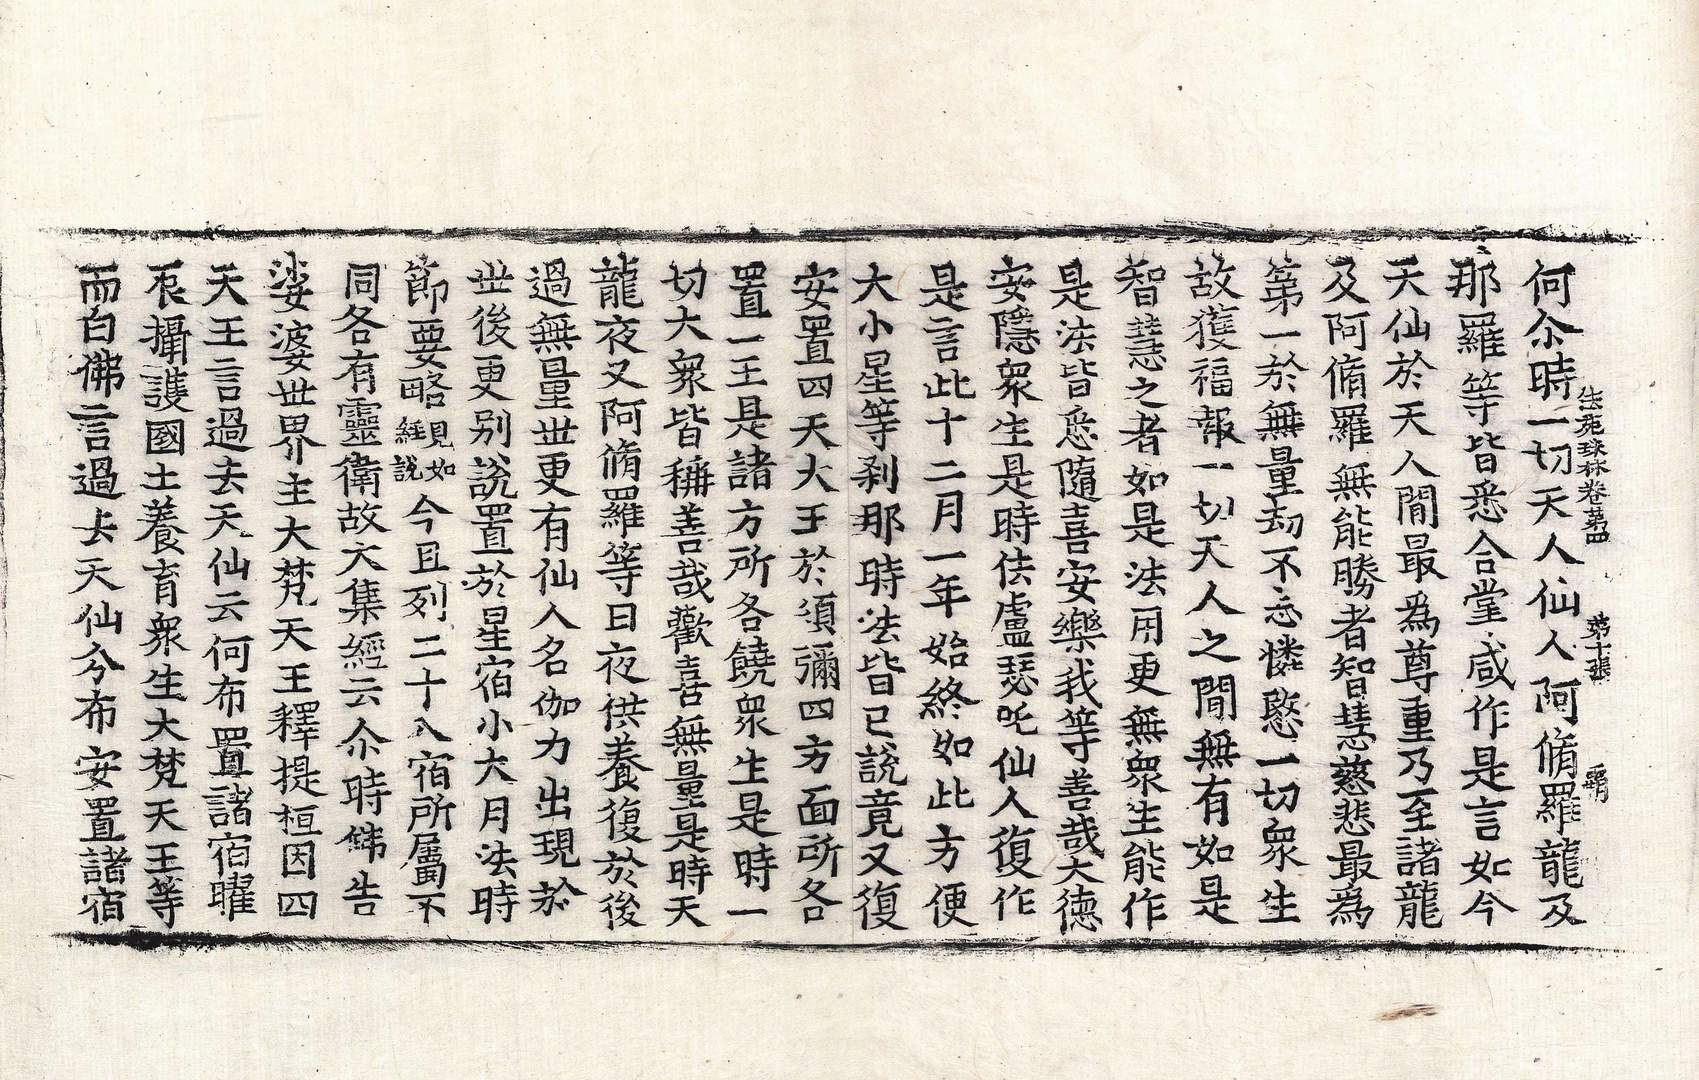 法苑珠林卷第四 第十張 覇
何尒時一切天人仙人阿脩羅龍及
那羅等皆悉合掌咸作是言如今
天仙於天人間最爲尊重乃至諸龍
及阿脩羅無能勝者智慧慈悲最爲
第一於無量劫不忘憐愍一切衆生
故獲福報一切天人之間無有如是
智慧之者如是法用更無衆生能作
是法皆悉隨喜安樂我等善哉大德
安隱衆生是時佉盧瑟吒仙人復作
是言此十二月一年始終如此方便
大小星等刹那時法皆已說竟又復
安置四天大王於須彌四方面所各
置一王是諸方所各饒衆生是時一
切大衆皆稱善哉歡喜無量是時天
龍夜叉阿脩羅等日夜供養復於後
過無量世更有仙人名伽力出現於
世後更別說置於星宿小大月法時
節要略如經見說今且列二十八宿所屬不
同各有靈衛故大集經云尒時佛告
娑婆世界主大梵天王釋提桓因四
天王言過去天仙云何布置諸宿曜
辰攝護國土養育衆生大梵天王等
而白佛言過去天仙分布安置諸宿